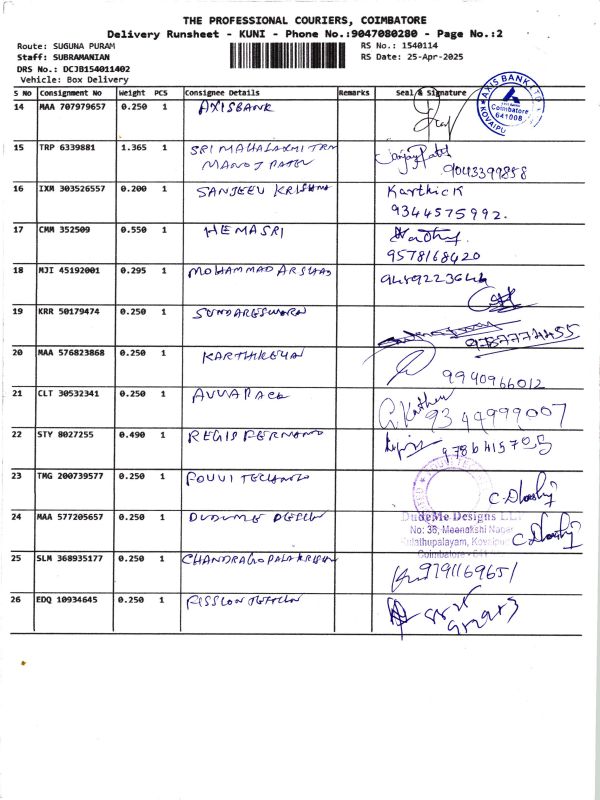 THE PROFESSIONAL COURIERS, COIMBATORE
Delivery Runsheet - KUNI - Phone No.:9047080280 - Page No.:2
Route: SUGUNA PURAM
Staff: SUBRAMANIAN
DRS No.: DCJB154011402
Vehicle: Box Delivery
RS No.: 1540114
RS Date: 25-Apr-2025
S No Consignment No Weight PCS Consignee Details Remarks Seal & Signature
14 MAA 707979657 0.250 1 AXISBANK
AXIS BANK LTD
Coimbatore
641008
KOVAIPU
15 TRP 6339881 1.365 1 SRI MAHALAXMI TRN
MANOJ PATEL
Sanjay Patel
9043399858
16 IXM 303526557 0.200 1 SANJEEV KRISHNA Karthick
9344575992.
17 CMM 352509 0.550 1 HEMASRI
9578168420
18 MJI 45192001 0.295 1 MOHAMMAD ARSHAD
19 KRR 50179474 0.250 1 SUNDARESWARN
20 MAA 576823868 0.250 1 KARTHIKEYAN
9940966012
21 CLT 30532341 0.250 1
9344999007
22 STY 8027255 0.490 1 REGIS FERNAND
23 TMG 200739577 0.250 1
C. Dhoshj
24 MAA 577205657 0.250 1 DUDEME DESIGN
DudeMe Designs LL
No: 38, Meenakshi Nagar
ulathupalayam, Kov
Coimbatore - 641
25 SLM 368935177 0.250 1 CHANDRAGOPALAKRISHN
9791169651
26 EDQ 10934645 0.250 1